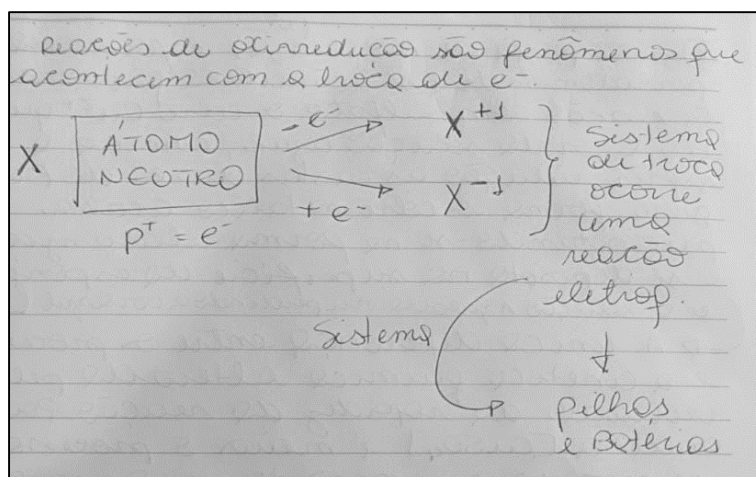 Reações de oxirredução são fenômenos que
acontecem com a troca de e-.
X
ÁTOMO
NEUTRO
p+ = e-
- e-
X+1
+ e-
X-1
Sistema
de troca
ocorre
uma
reação
eletrop.
Sistema
pilhas
e Baterias